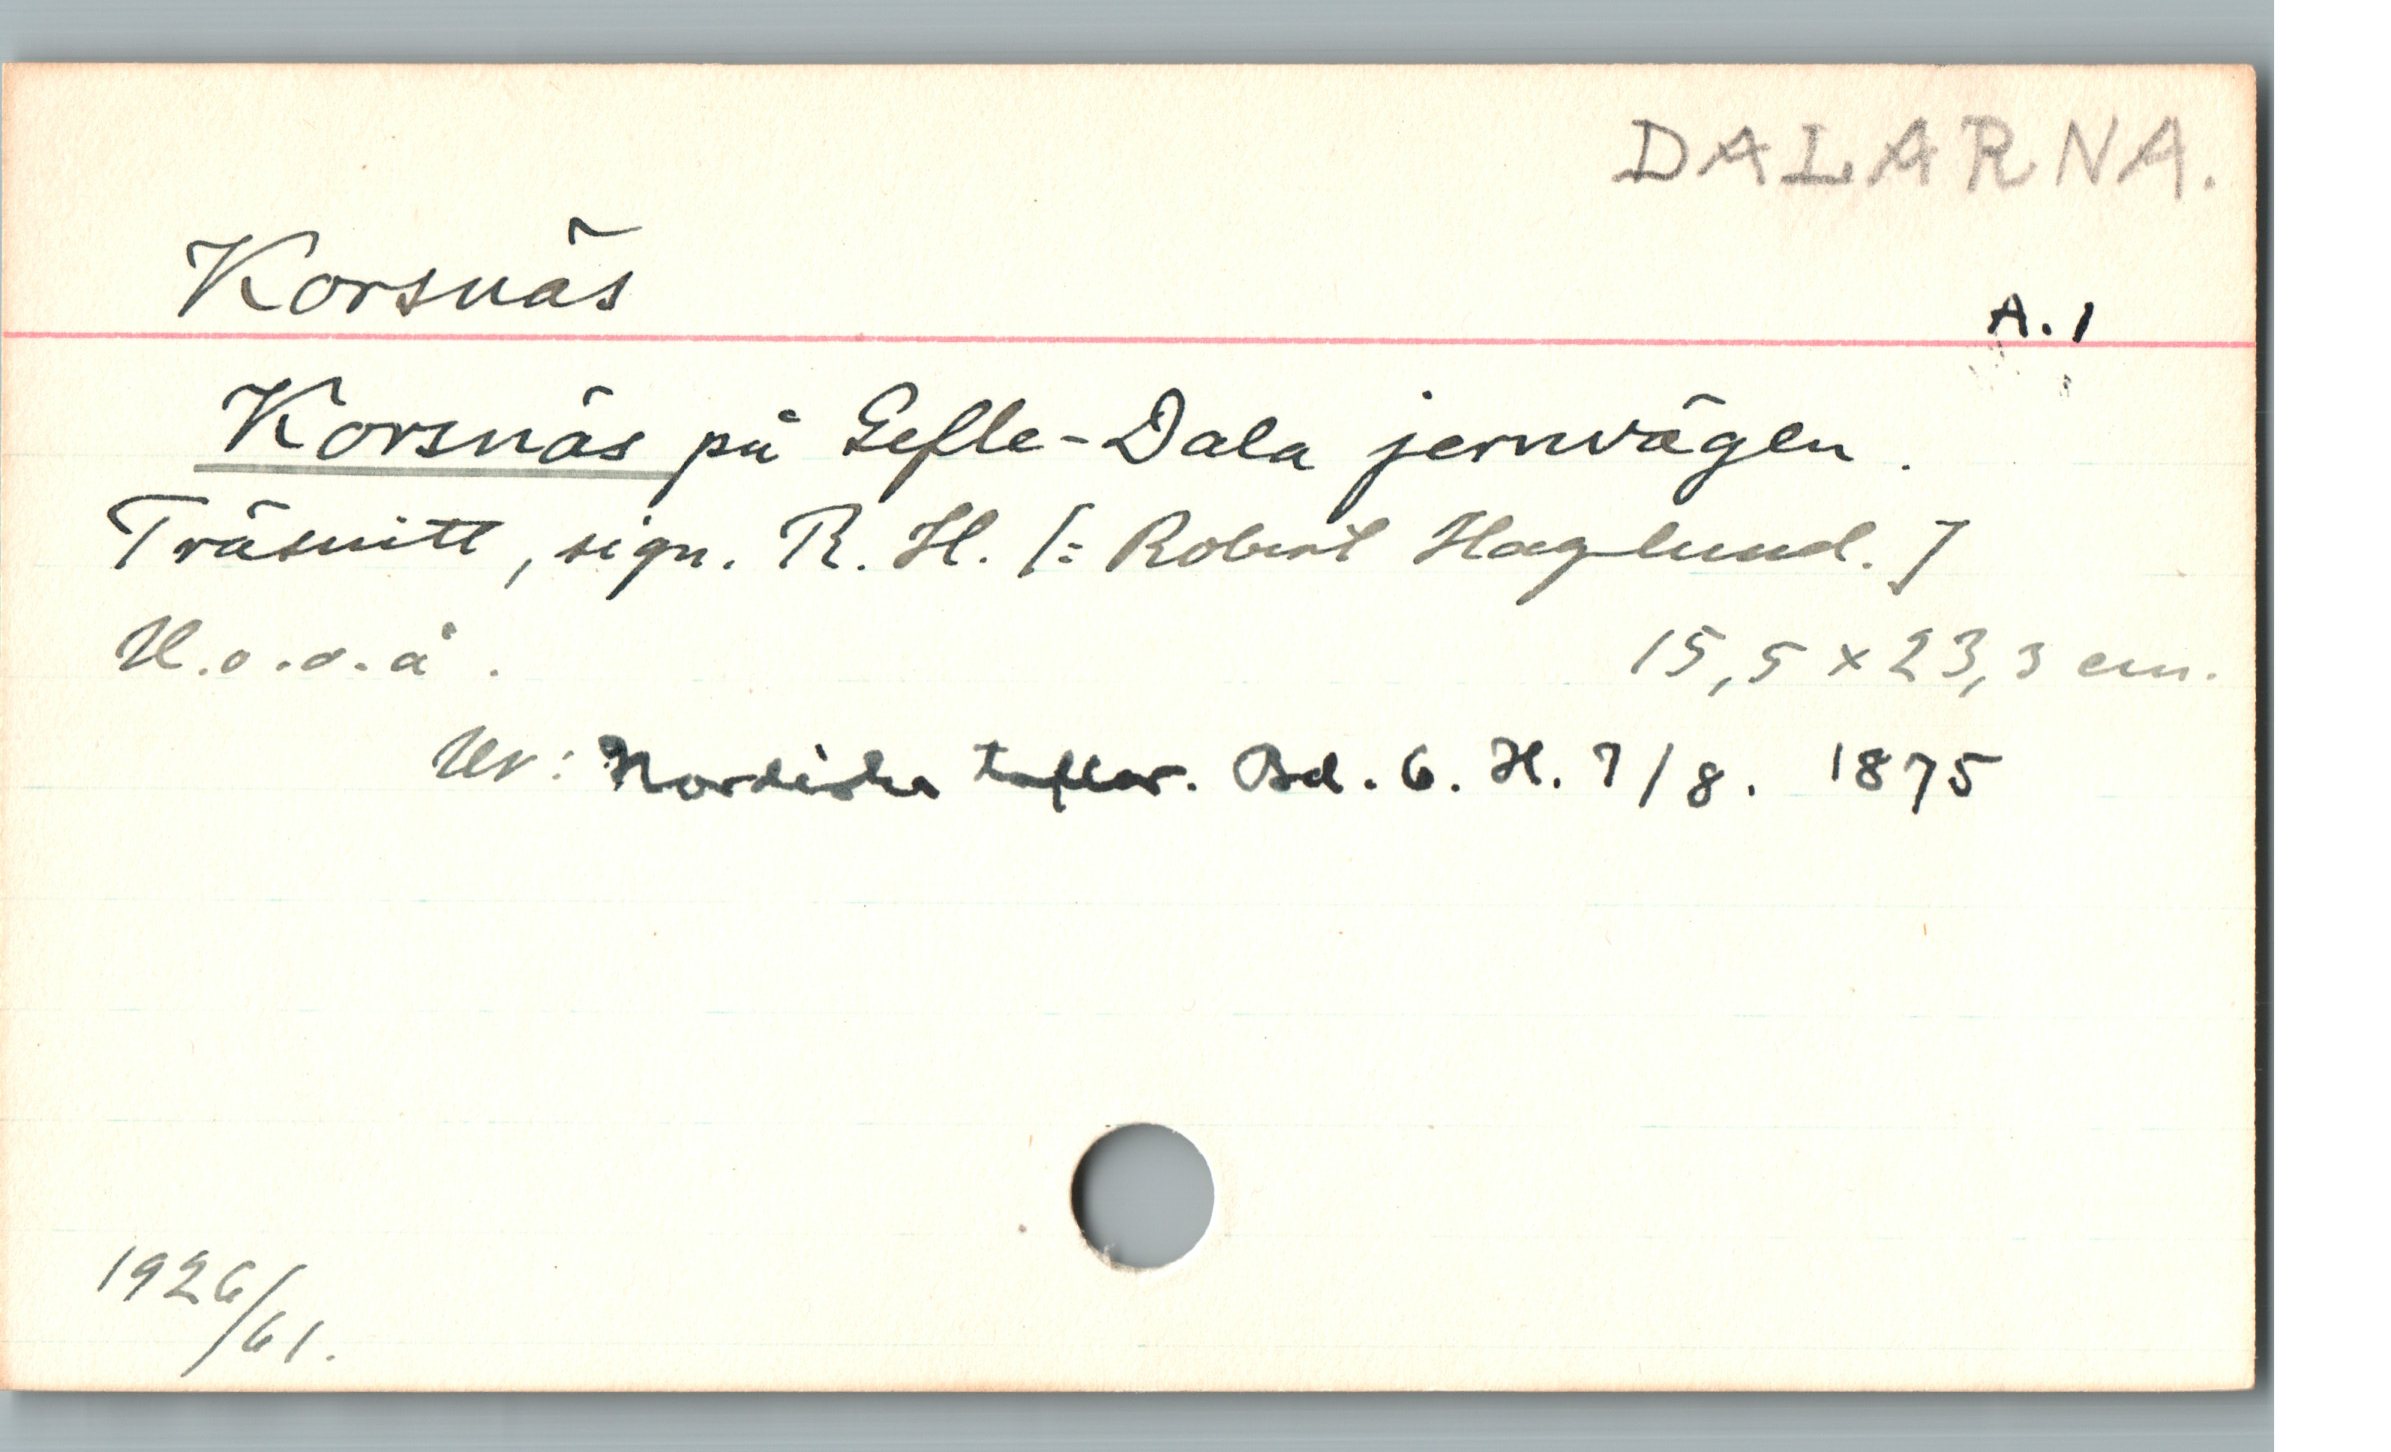 DALARNA.
Korsnäs
A.1
Korsnäs på Gefle-Dala jernvägen.
Träsnitt, sign. R. H. [= Robert Haglund.]
U.o.o.å.
15,5 x 23,3 cm.
Ur: Nordiska taflor. Bd. 6. H. 7/8. 1875
1926/61.